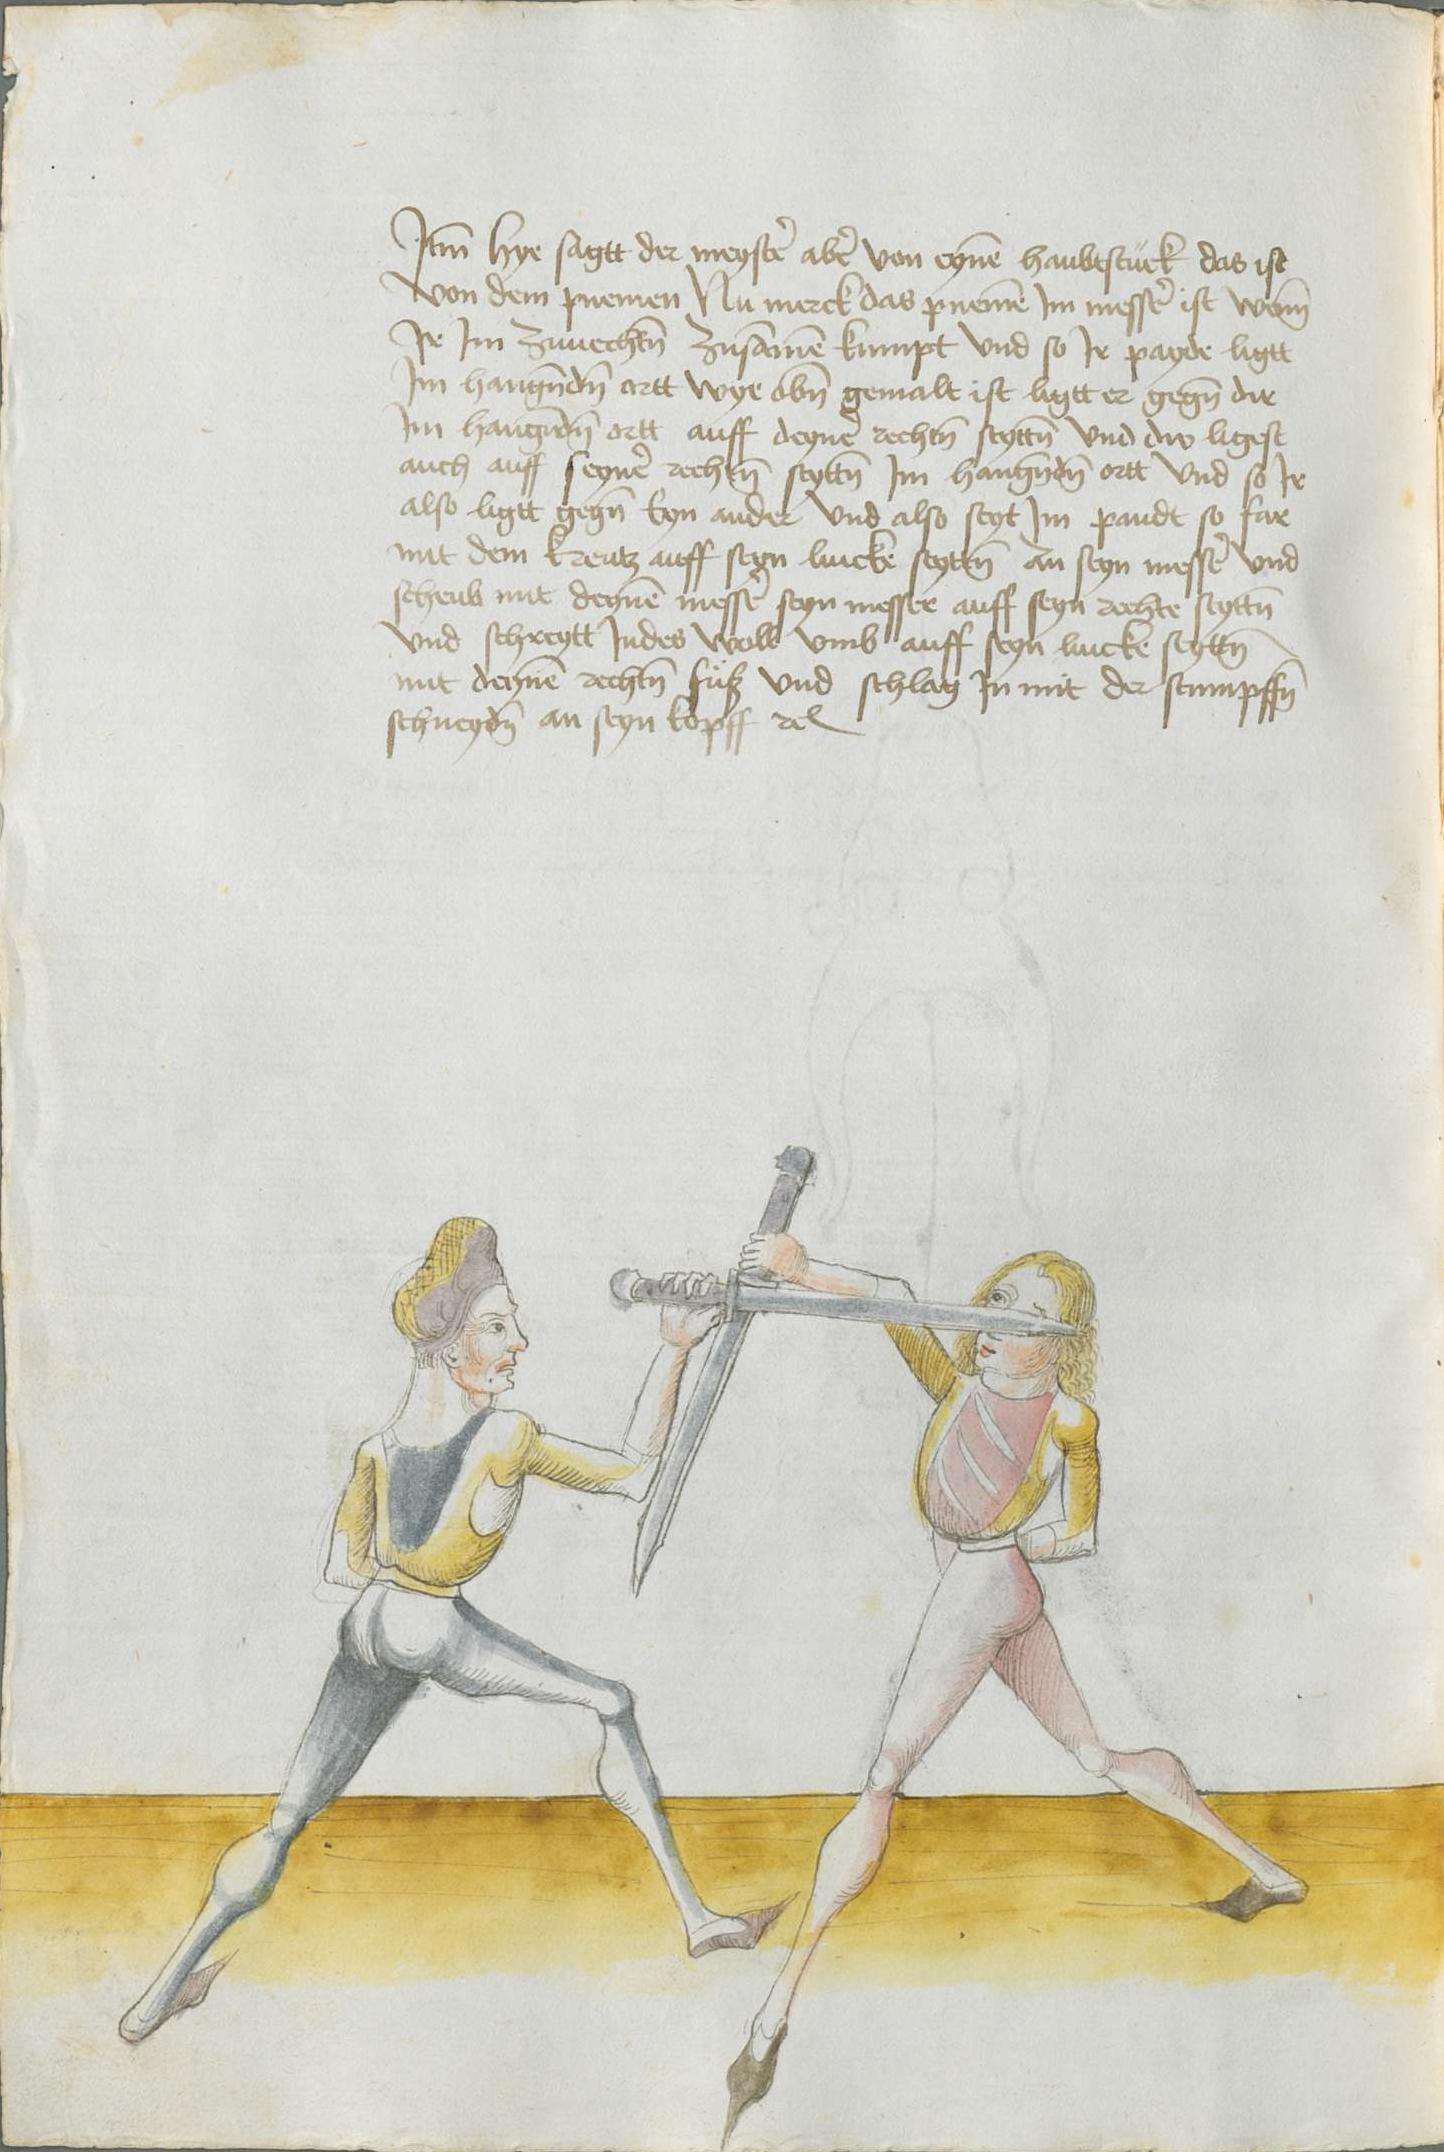 Itm̄ hye sagtt der meystẽ abẽ von eynē haubtstück das ist
von dem pnemen Nu merck das pnemē Im messẽ ist wenn̄
Ir Im zuuechtn̄ zusāmē kumpt vnd so Ir payde ligtt
Im hangn̄dn̄ ortt wye obn̄ gemalt ist ligtt er gegn̄ dir
Im hangn̄dn̄ ortt auff deynẽ rechtn̄ seyttn̄ vnd dw ligest
auch auff seynẽ rechtn̄ seyttn̄ Im hangn̄dn̄ ortt vnd so Ir
also ligtt gegn̄ eyn ander vnd also seyt Im pandt so far
mit dem kreutz auff seyn lincke seyttn̄ an seyn messẽ vnd
scheub mit deynē messẽ seyn messer auff seyn rechte seyttn̄
vnd schreytt Indes woll vmb auff seyn lincke seyttn̄
mit deynē rechtn̄ füß vnd schlag In mit der stumpffn̄
schneydn̄ an seyn kopff rc